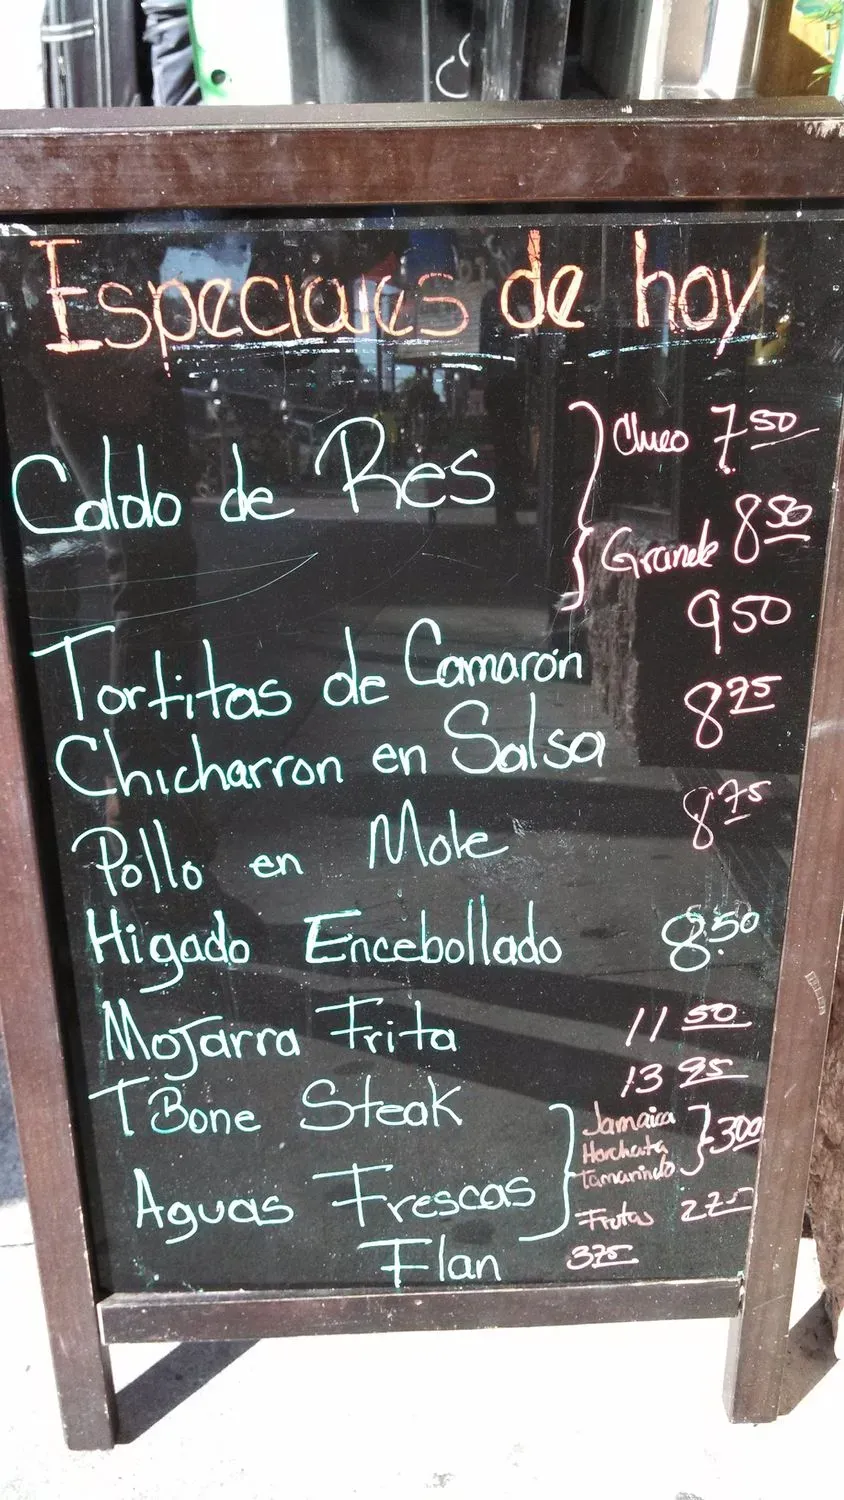 Especiales de hoy
Caldo de Res
Chico 7.50
Grande 8 50
9 50
Tortitas de Camarón
8 75
Chicharron en Salsa
8 75
Pollo en Mole
Higado Encebollado 8.50
Mojarra Frita 11 50
T Bone Steak 13 95
Aguas Frescas
Jamaica
Horchata
Tamarindo
300
Frutas
Flan 375